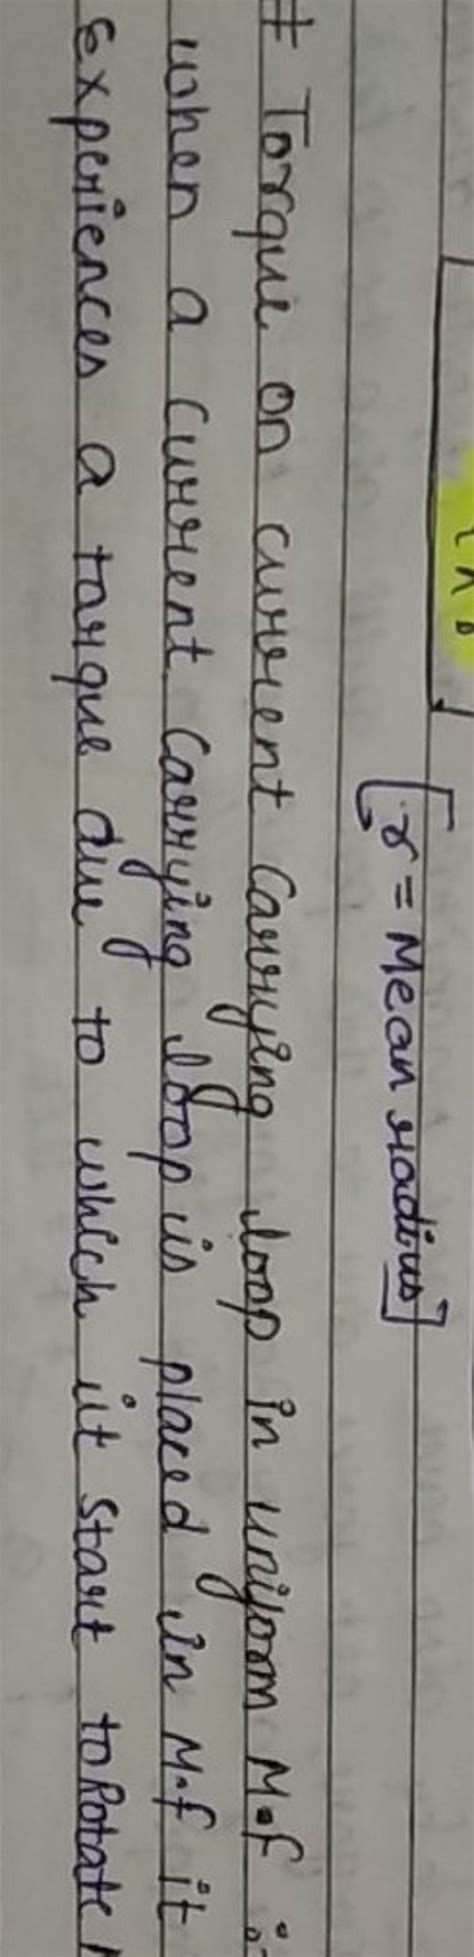 [r = Mean radius]
# Torque on current carrying loop in uniform M.f :-
when a current carrying loop is placed in M.f it
experiences a torque due to which it start to Rotate